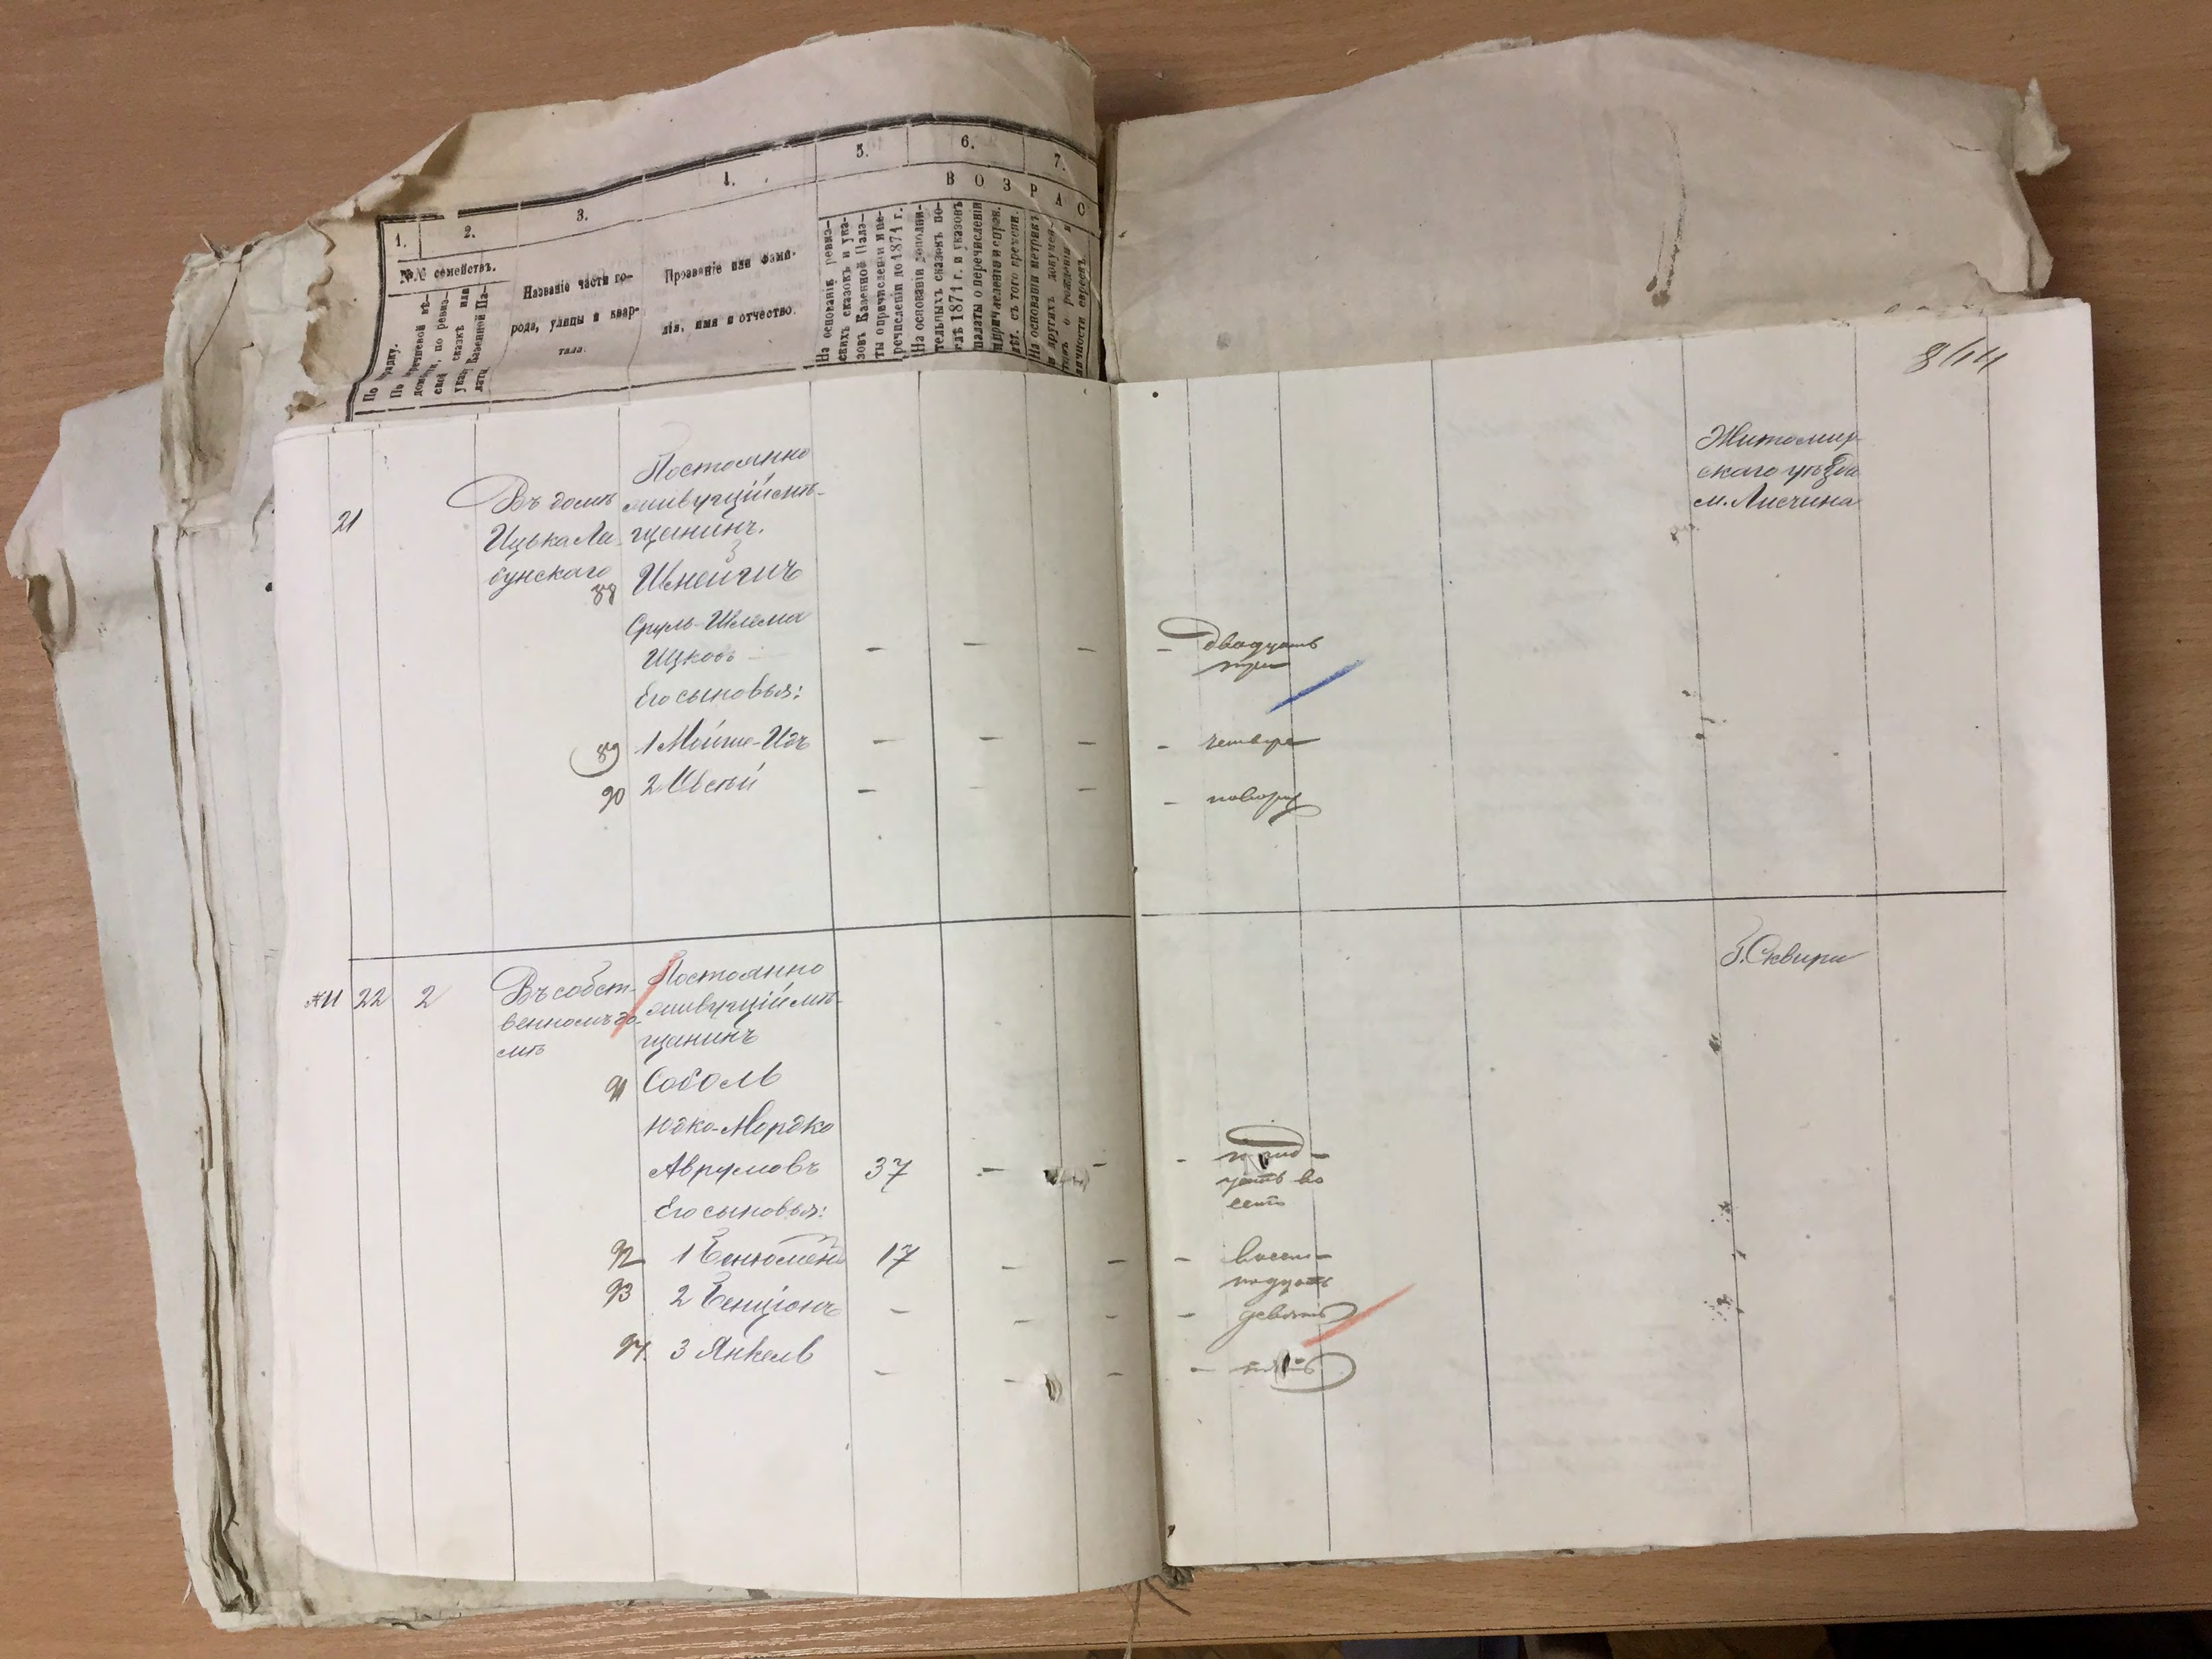 1.
2.
3.
4.
5.
6.
7.
№№ семействъ.
В О З Р А С
Названіе части го-
рода, улицы и квар-
тала.
Прозваніе или фами-
лія, имя и отчество.
На основаніи ревиз-
скихъ сказокъ и ука-
зовъ Казенной Пала-
ты о причисленіи и пе-
речисленіи до 1874 г.
На основаніи дополни-
тельныхъ сказокъ по-
слѣ 1874 г. и указовъ
палаты о перечисленіи
и причисленіи
съ того времени.
На основаніи метрикъ
и другихъ докумен-
товъ о рожденіи и
личности евреевъ.
8
21
Въ домѣ
Ицька Ла-
бунскаго
Постоянно
живущій мѣ-
щанинъ.
88
Сруль-Шлема
Ицковъ
Его сыновья:
89 1 Мойше-Идъ
90 2
двадцать
три
четыре
полтора
Житомир-
скаго уѣзда
м.
22 2
Въ собст-
венномъ до-
мѣ
Постоянно
живущій мѣ-
щанинъ
91 Соболь
Юдко-Мордко
Аврумовъ 37
Его сыновья:
92 1 Бенюмень 17
93 2 Бенціонъ
94. 3 Янкель
трид-
цать во
семь
восем-
надцать
девять
пять
г. Сквири